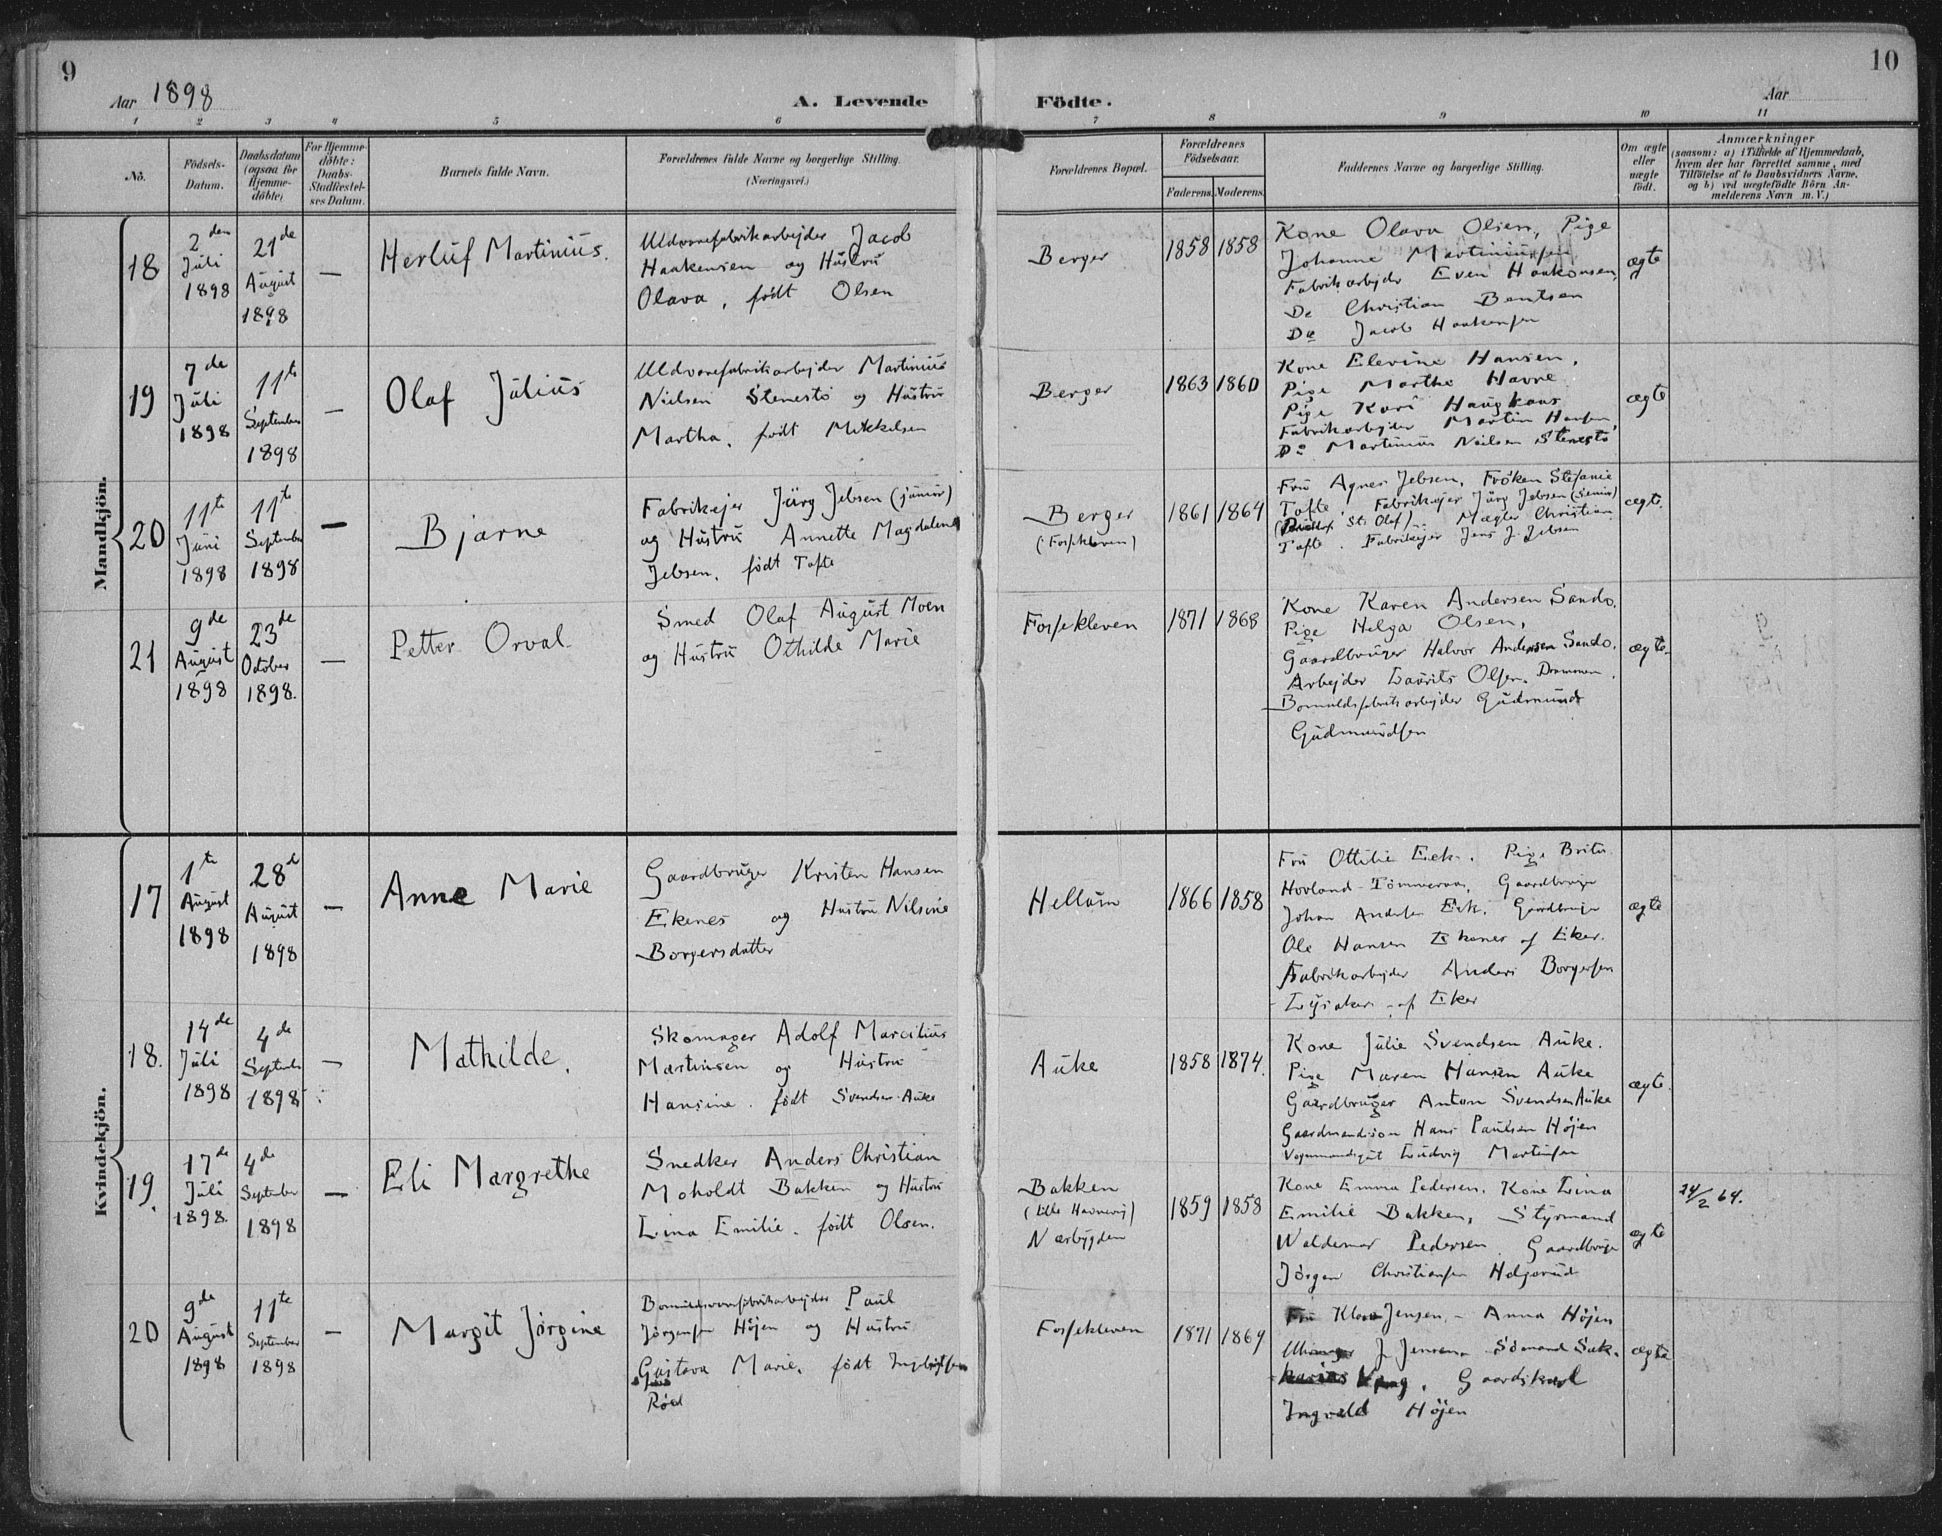 9
Aar 1898
A. Levende Födte.
Aar
10
1 2 3 4 5 6 7 8 9 10 11
No.
Födsels-Datum.
Daabsdatum (ogsaa for Hjemme-döbte)
For Hjemme-döbte: Daabs-Stadfæstel-ses Datum.
Barnets fulde Navn.
Forældrenes fulde Navne og borgerlige Stilling.
(Næringsvei.)
Forældrenes Bopæl.
Forældrenes Födselsaar.
Faderens. Moderens.
Faddernes Navne og borgerlige Stilling.
Om ægte eller uægte födt.
Anmærkninger
(saasom: a) i Tilfælde af Hjemmedaab,
hvem der har forrettet samme, med
Tilföielse af to Daabsvidners Navne,
og b) ved uægtefödte Börn An-
melderens Navn m. V.)
Mandkjön.
18
2den Juli 1898
21de August 1898
—
Herluf Martinius.
Uldvarefabrikarbejder Jacob
Haakensen og Hustru
Olava, født Olsen
Berger
1858 1858
Kone Olava Olsen, Pige
Johanne Martiniussen
Fabrikarbejder Even Haakonsen,
Do Christian Bentsen
Do Jacob Haakensen
ægte
19
7de Juli 1898
11te September 1898
—
Olaf Julius
Uldvarefabrikarbejder Martinius
Nielsen Stenestø og Hustru
Martha, født Mikkelsen
Berger
1863 1860
Kone Elevine Hansen,
Pige Marthe Havne
Pige Kari Haugkaas
Fabrikarbejder Martin Hansen,
Do Martinius Nielsen Stenestø
ægte
20
11te Juni 1898
11te September 1898
—
Bjarne
Fabrikejer Jürg Jebsen (junior)
og Hustru Annette Magdalena
Jebsen, født Tofte
Berger
(Forsekleven)
1861 1864
Fru Agnes Jebsen, Frøken Stefanie
Tofte, Fabrikejer Jürg Jebsen (senior)
(Ridder St. Olaf). Mægler Christian
Tofte. Fabrikejer Jens J. Jebsen
ægte.
21
9de August 1898
23de October 1898.
—
Petter Orval
Smed Olaf August Moen
og Hustru Othilde Marie
Forsekleven
1871 1868
Kone Karen Andersen Sando.
Pige Helga Olsen,
Gaardbruger Halvor Andersen Sando.
Arbejder Laurits Olsen. Drammen.
Bomuldsfabrikarbejder Gudmund
Gudmundsen
ægte.
Kvindekjön.
17
1te August 1898
28d August 1898
—
Anne Marie
Gaardbruger Kristen Hansen
Ekenes og Hustru Nilsine
Borgersdatter
Hellum
1866 1858
Fru Ottilie Eek. Pige
Hovland Gaardbruger
Johan Andersen Eek. Gaardbruger
Ole Hansen Ekenes af Eker.
Fabrikarbejder Anders Borgersen
Lysaker af Eker
ægte
18.
14de Juli 1898
4de September 1898
—
Mathilde.
Skomager Adolf Marcilius
Martinsen og Hustru
Hansine. født Svendsen Auke
Auke
1858 1874.
Kone Julie Svendsen Auke.
Pige Maren Hansen Auke
Gaardbruger Anton Svendsen Auke
Gaardmandsøn Hans Paulsen Højen
Ludvig Martinsen
ægte.
19.
17de Juli 1898.
4de September 1898
—
Eli Margrethe
Snedker Anders Christian
Moholdt Bakken og Hustru
Lina Emilie. født Olsen.
Bakken
(Lille Havnevig)
Nærbygden
1859 1858
Kone Emma Pedersen. Kone Lina
Emilie Bakken, Styrmand
Waldemar Pedersen. Gaardbruger
Jørgen Christiansen Helgerud
ægte
24/2 64.
20
9de August 1898
11te September 1898
—
Margit Jørgine
Bomuldsvarefabrikarbejder Paul
Jørgensen Højen og Hustru
Gustava Marie, født Ingebretsen
Rød
Forsekleven
1871 1869
Fru Klara Jensen. - Anna Højen
J. Jensen. Sømand Sak-
karias Gaardskarl
Ingvald Højen
ægte